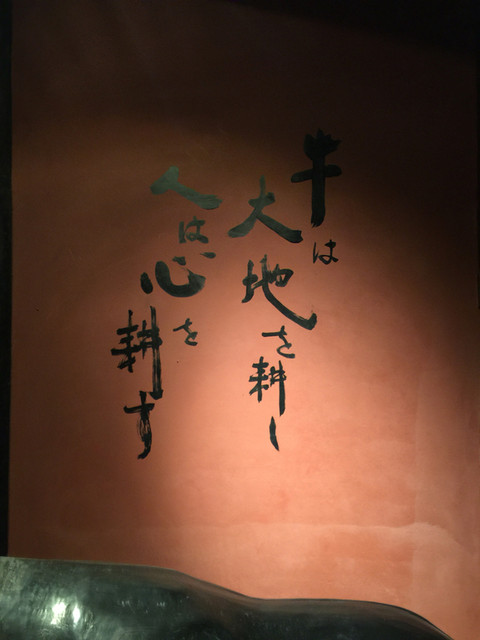 牛は
大地を耕し
人は心を
耕す